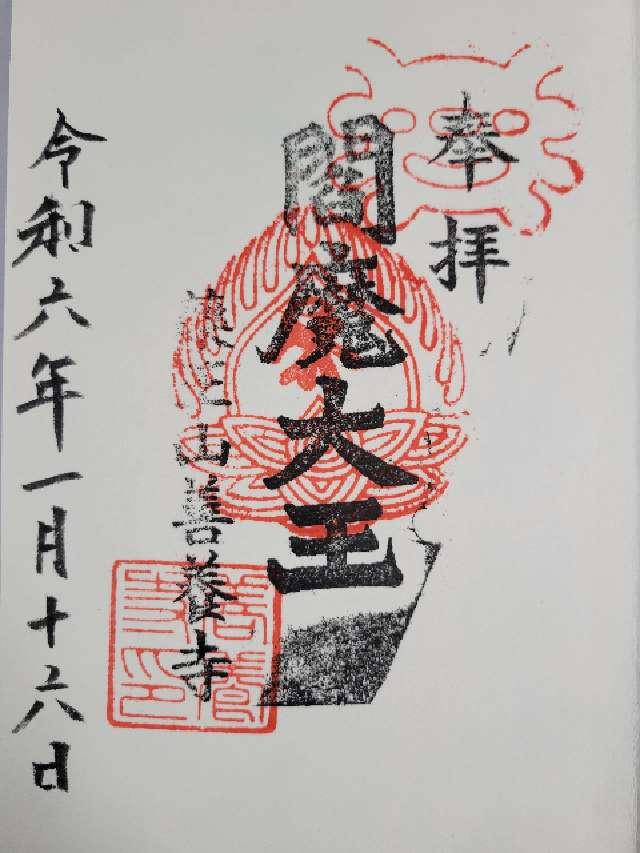 奉拝
閻魔大王
薬王山善養寺
令和六年一月十六日